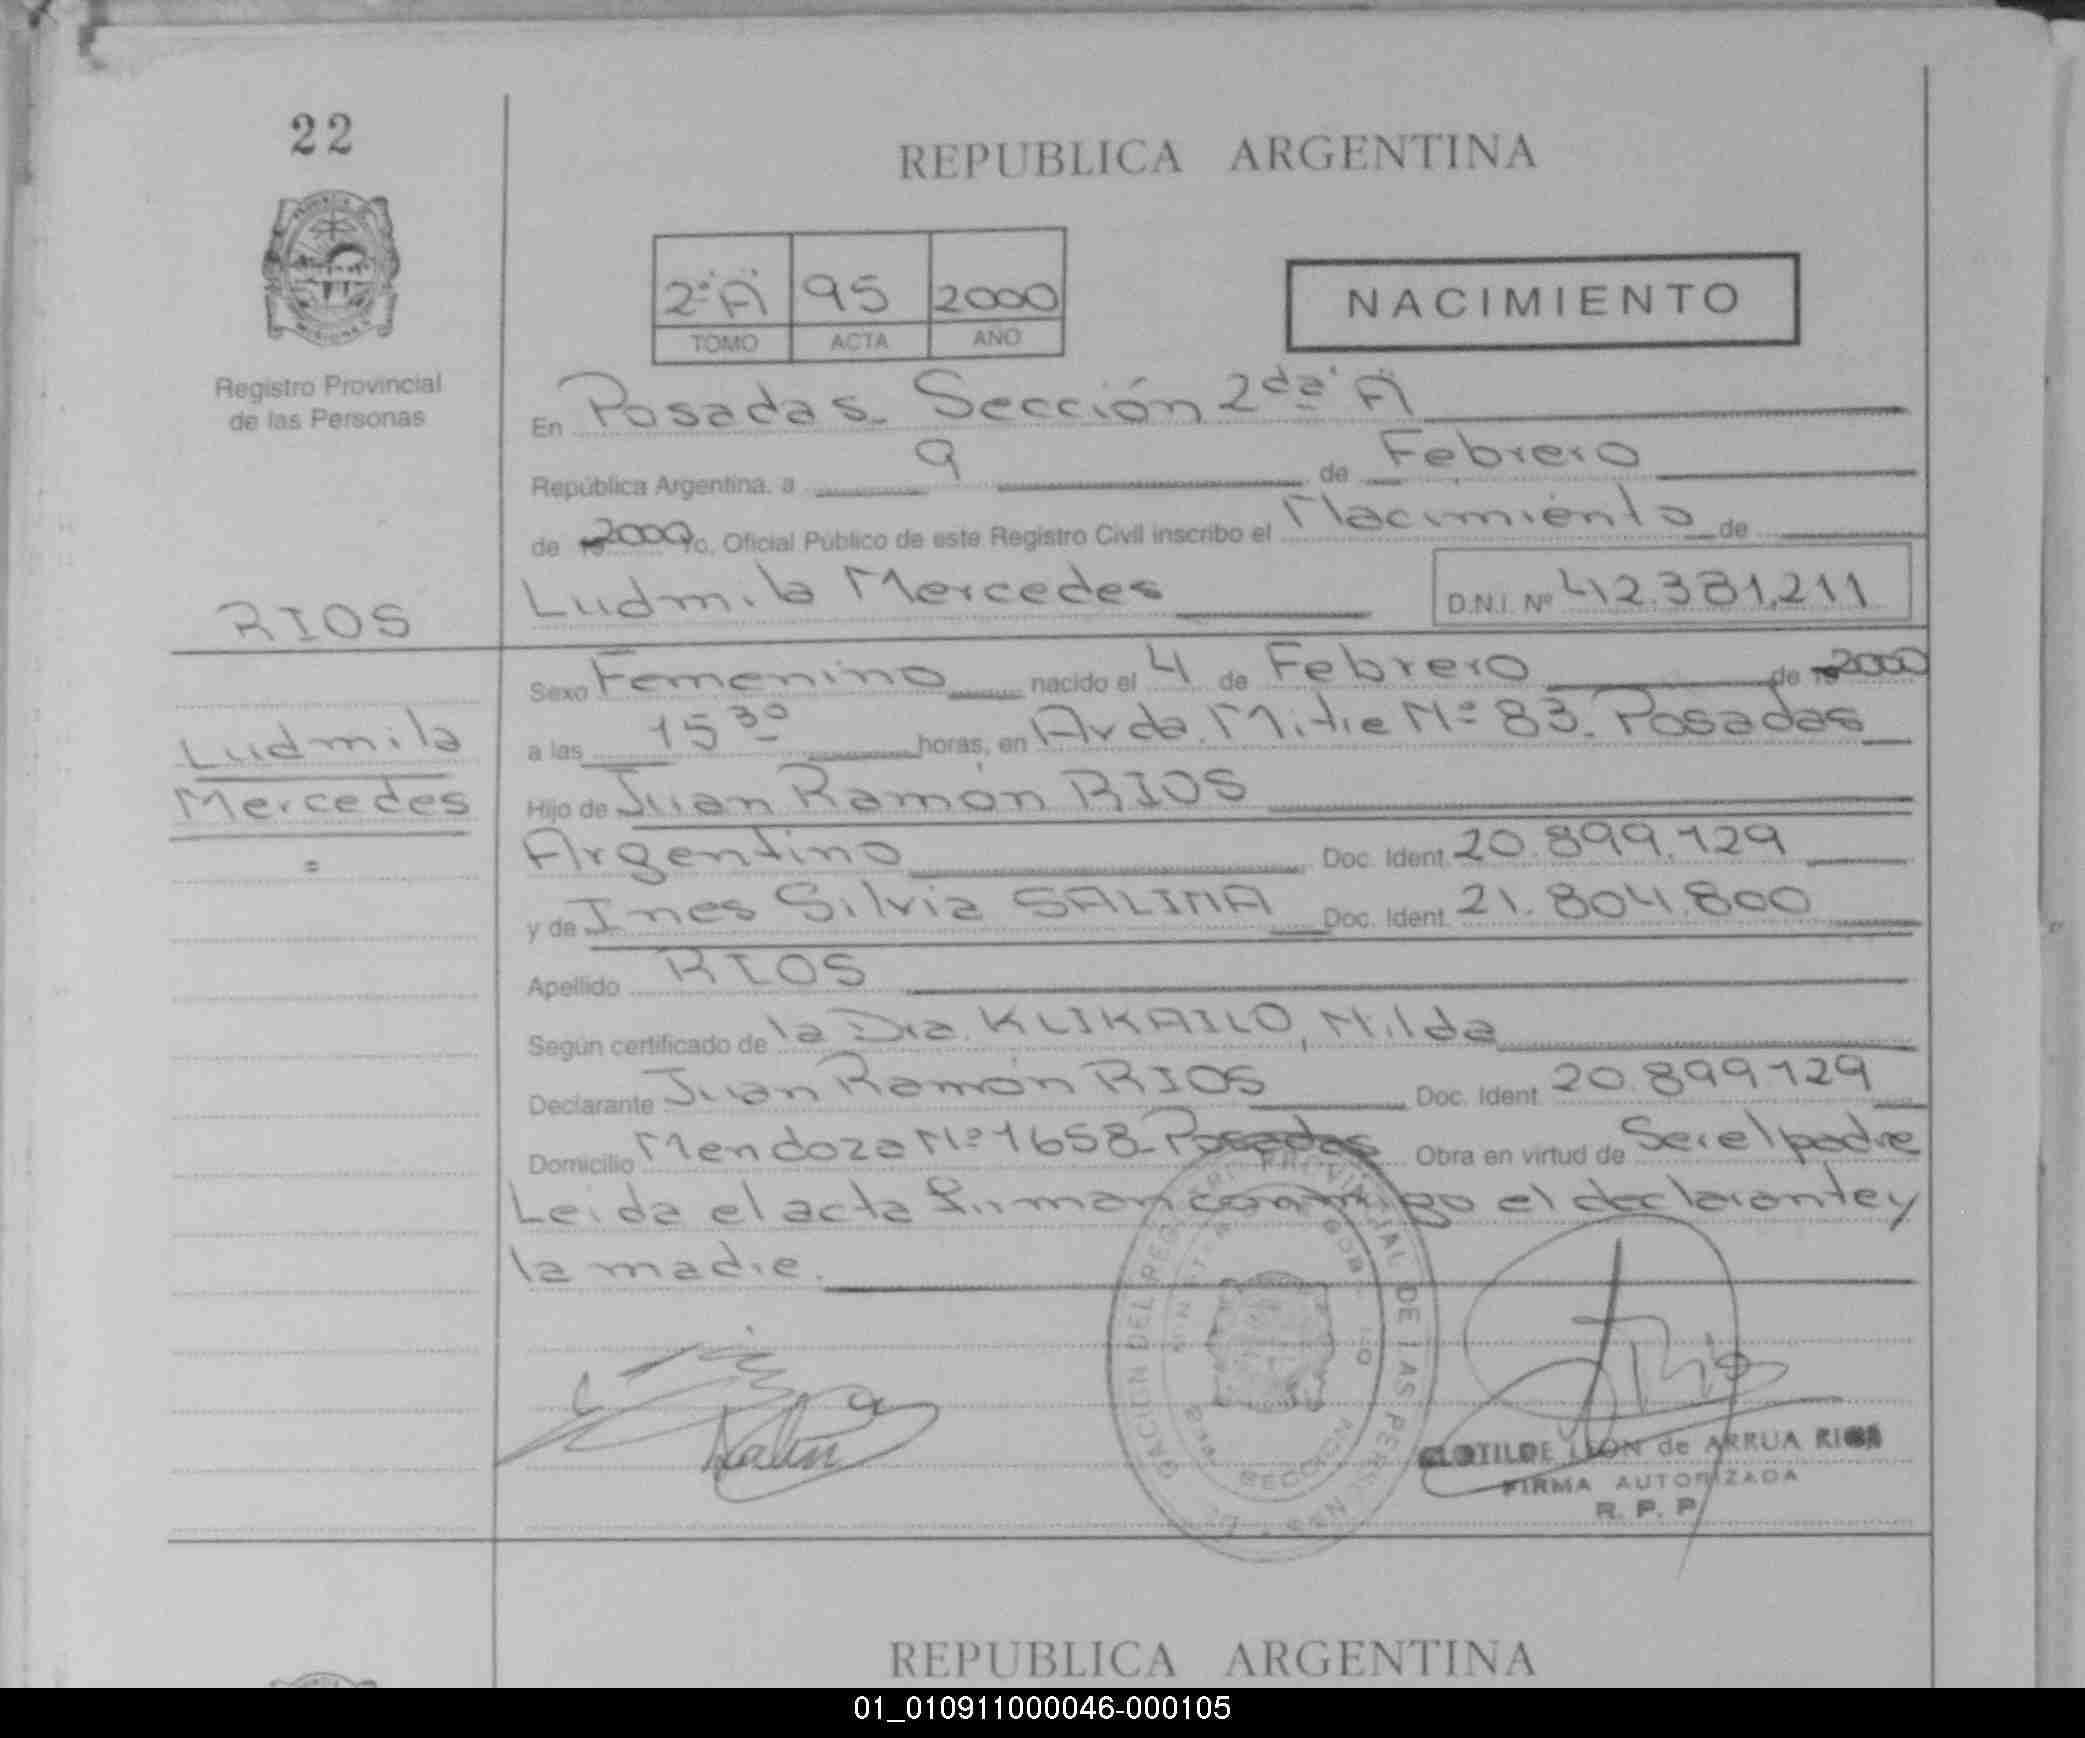 22
REPUBLICA ARGENTINA
2ª "A" 95 2000
TOMO ACTA AÑO
NACIMIENTO
Registro Provincial
de las Personas
En Posadas Sección 2da "A"
República Argentina, a 9 de Febrero
de 2000 Yo, Oficial Público de este Registro Civil inscribo el Nacimiento de
RIOS
Ludmila Mercedes D.N.I. Nº 42.381.211
Sexo Femenino nacido el 4 de Febrero de 2000
Ludmila
Mercedes
a las 15 30 horas, en Avda. Mitre Nº 83. Posadas
Hijo de Juan Ramón RIOS
Argentino Doc. Ident. 20.899.129
y de Ines Silvia SALINA Doc. Ident. 21.804.800
Apellido RIOS
Según certificado de la Dra. KLIKAILO, Nilda
Declarante Juan Ramón RIOS Doc. Ident. 20.899129
Domicilio Mendoza Nº 1658 Posadas Obra en virtud de Ser el padre
Leida el acta firman conmigo el declarante y
la madre.
SECCION
CLOTILDE LEON de ARRUA RIOS
FIRMA AUTORIZADA
R. P. P.
REPUBLICA ARGENTINA
01_010911000046-000105